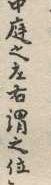 中庭之左右謂之位